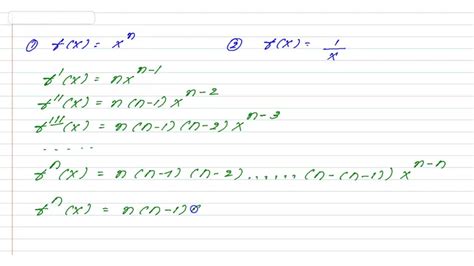 ① f(x) = xⁿ ② f(x) = 1/x
f'(x) = nxⁿ⁻¹
f''(x) = n(n-1)xⁿ⁻²
f'''(x) = n(n-1)(n-2)xⁿ⁻³
.....
fⁿ(x) = n(n-1)(n-2)......(n-(n-1))xⁿ⁻ⁿ
fⁿ(x) = n(n-1)